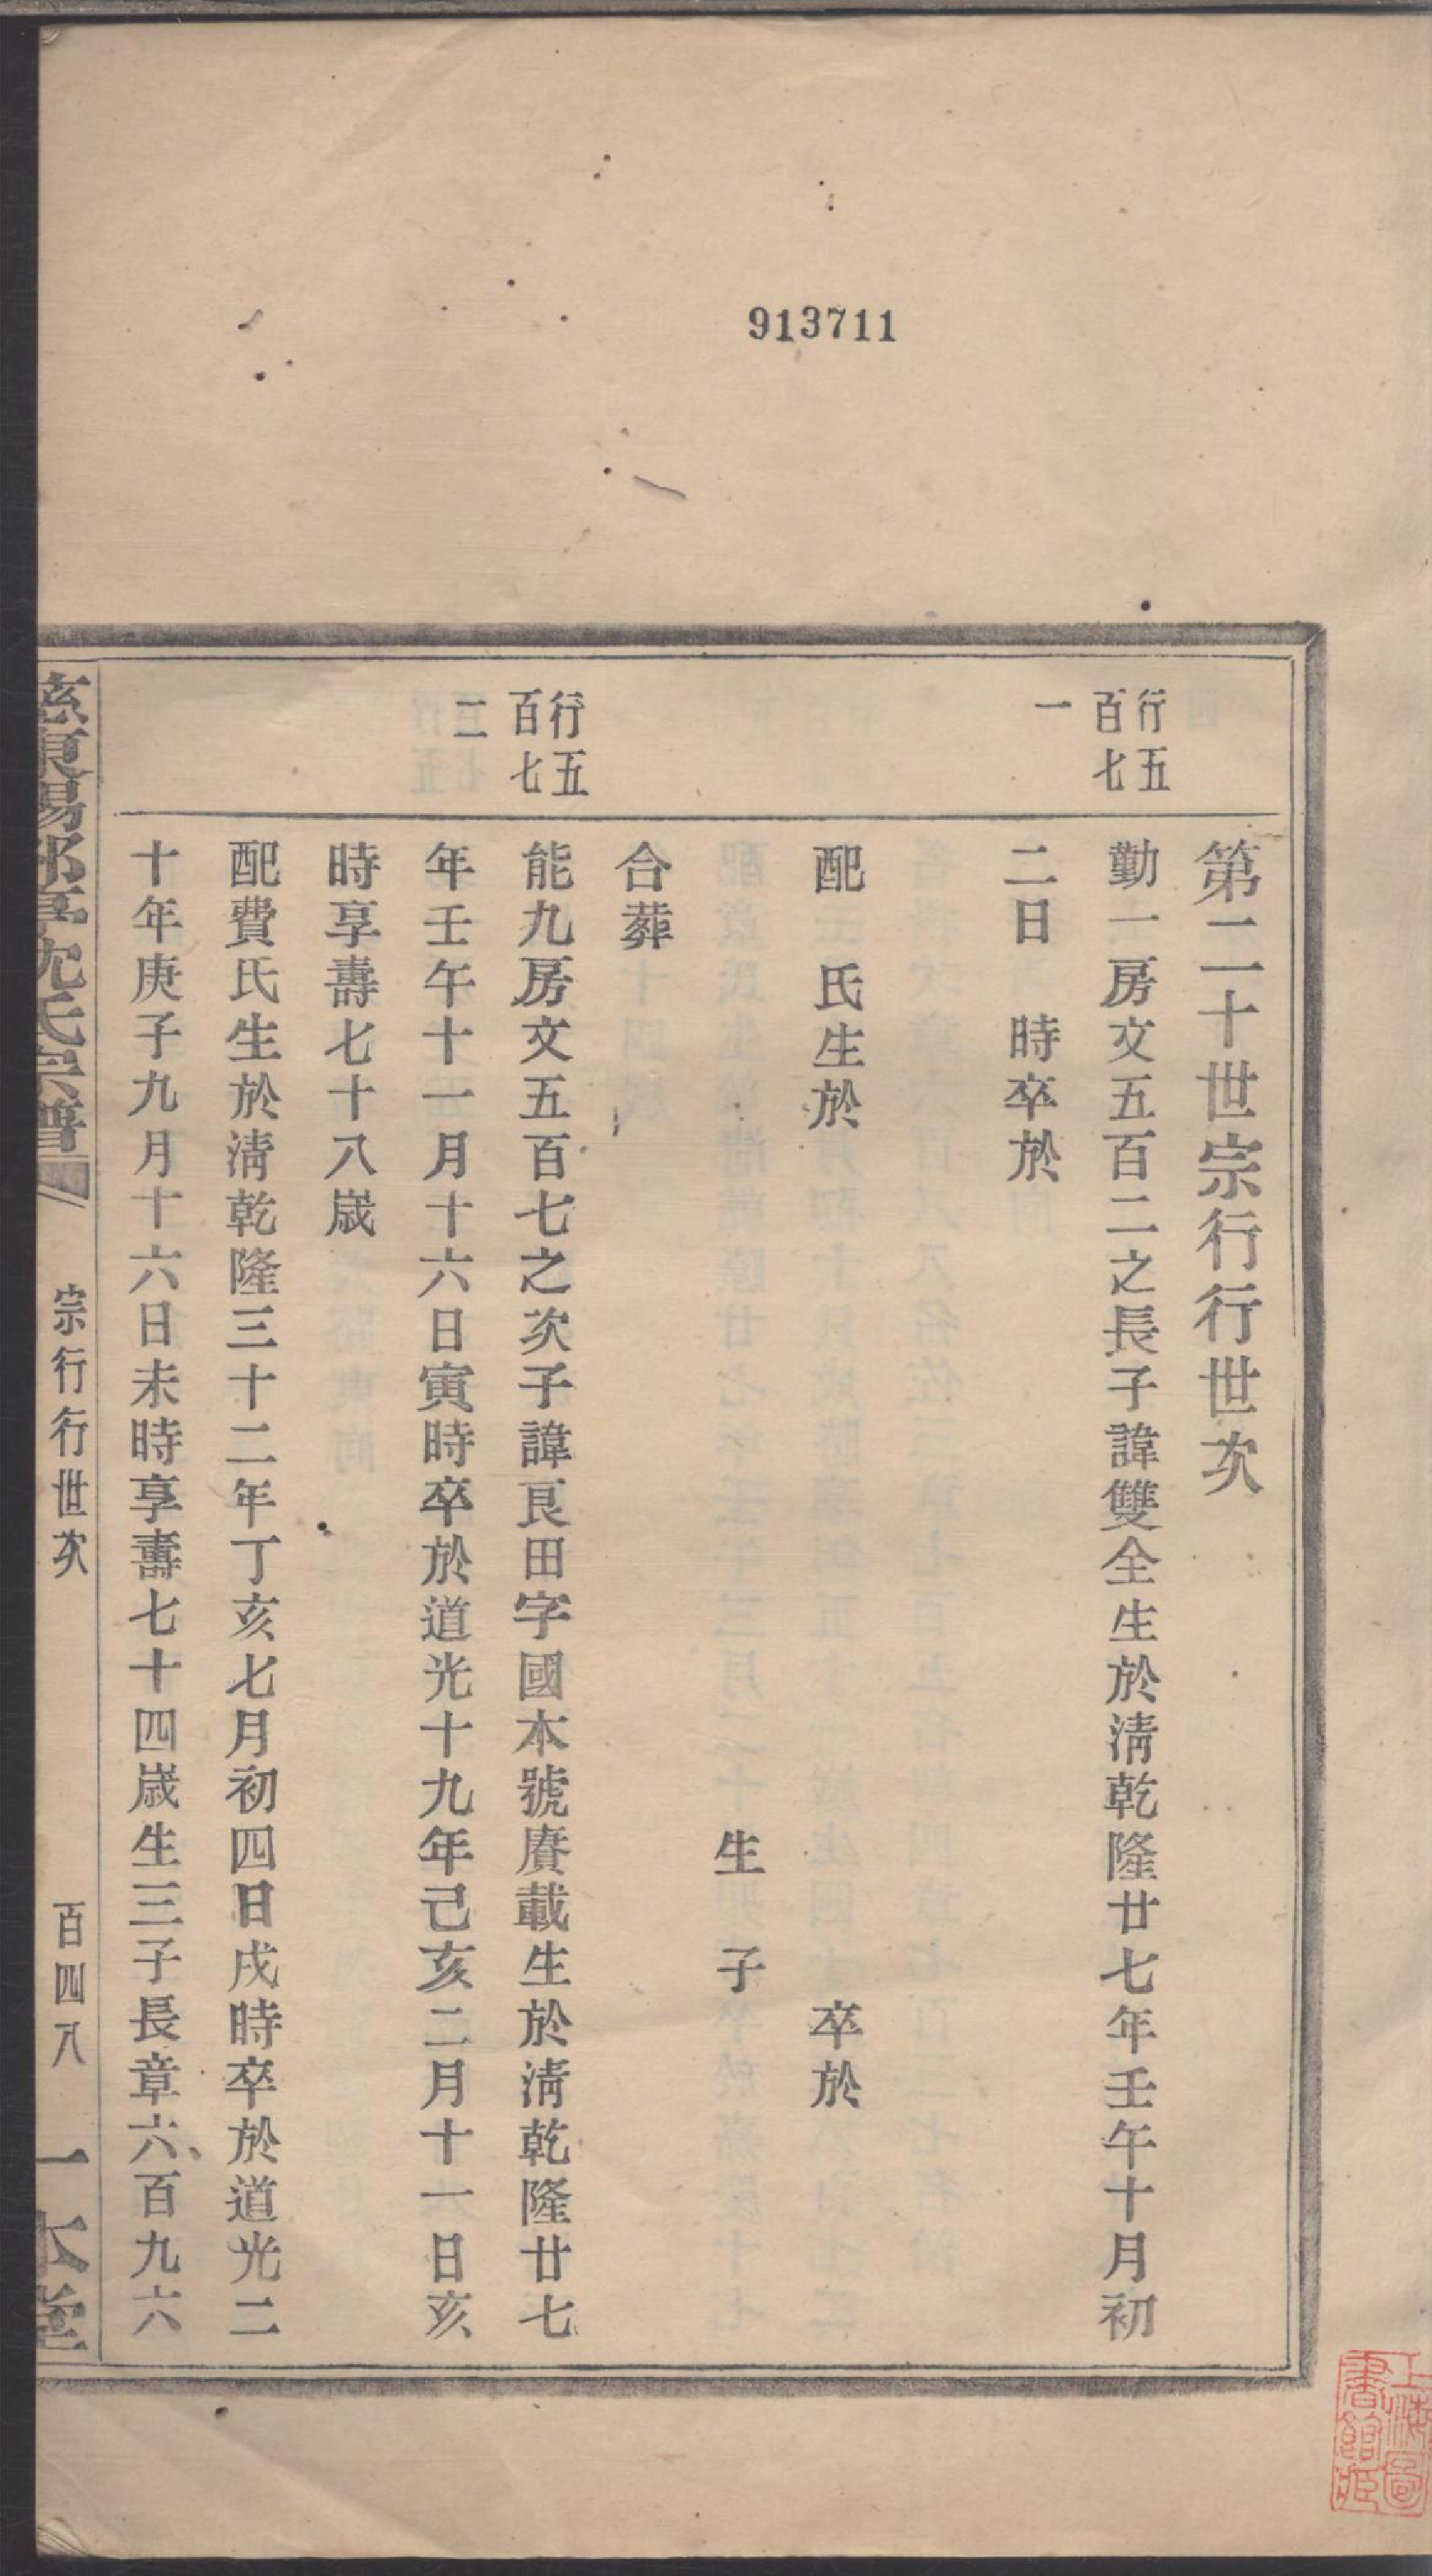 913711
第二十世宗行行世次
行五
百七
一
勤一房文五百二之長子諱雙全生於淸乾隆廿七年壬午十月初
二日　時卒於
配　氏生於　卒於
生　子
合葬
行五
百七
二
能九房文五百七之次子諱艮田字國本號賡載生於淸乾隆廿七
年壬午十一月十六日寅時卒於道光十九年己亥二月十一日亥
時享壽七十八歲
配費氏生於淸乾隆三十二年丁亥七月初四日戌時卒於道光二
十年庚子九月十六日未時享壽七十四歲生三子長章六百九六
慈東湯郎亭沈氏宗譜
宗行行世次
百四八
一本堂
上海圖
書館藏